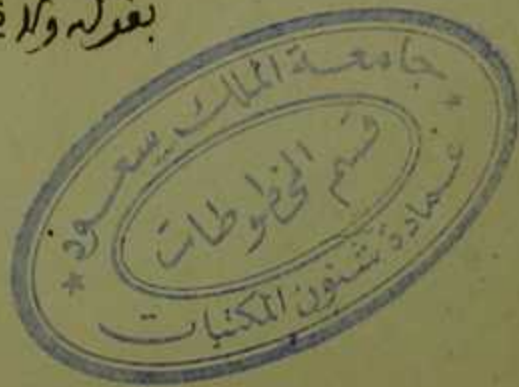 بقوله ولا
جامعة الملك سعود
قسم المخطوطات
عمادة شئون المكتبات